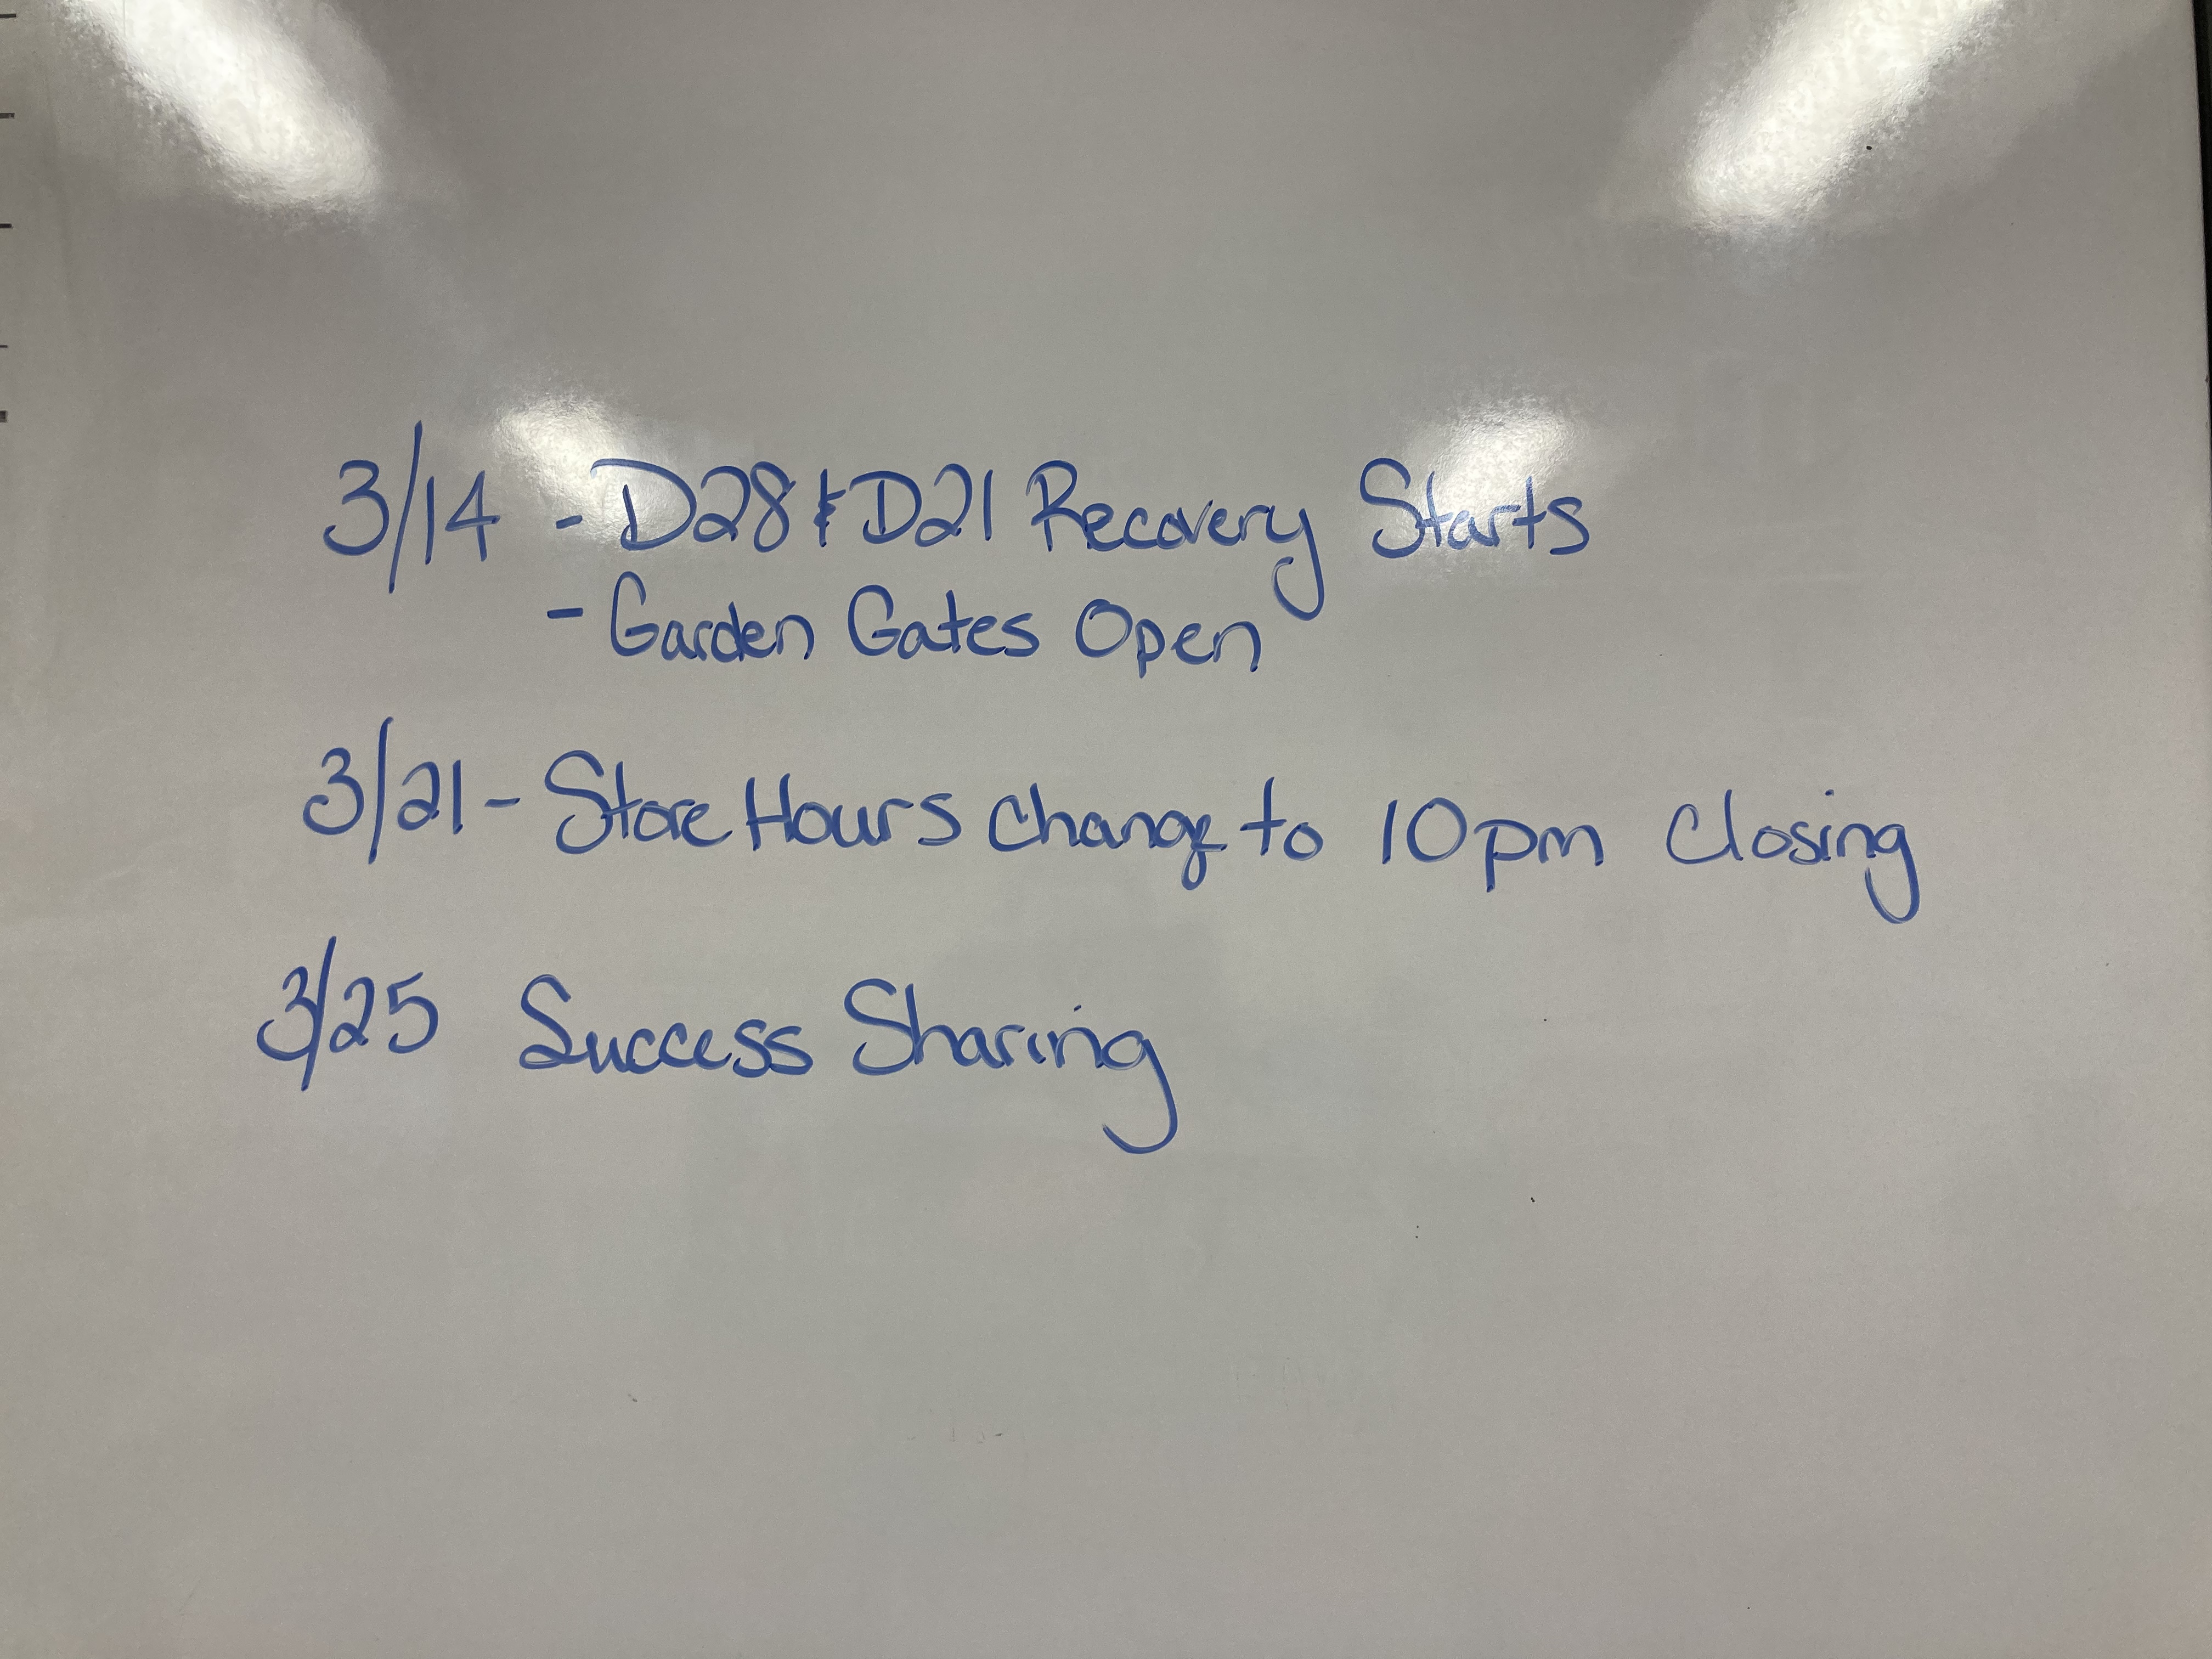 3/14 - D28 & D21 Recovery Starts
- Garden Gates Open
3/21 - Store Hours Change to 10pm Closing
3/25 Success Sharing